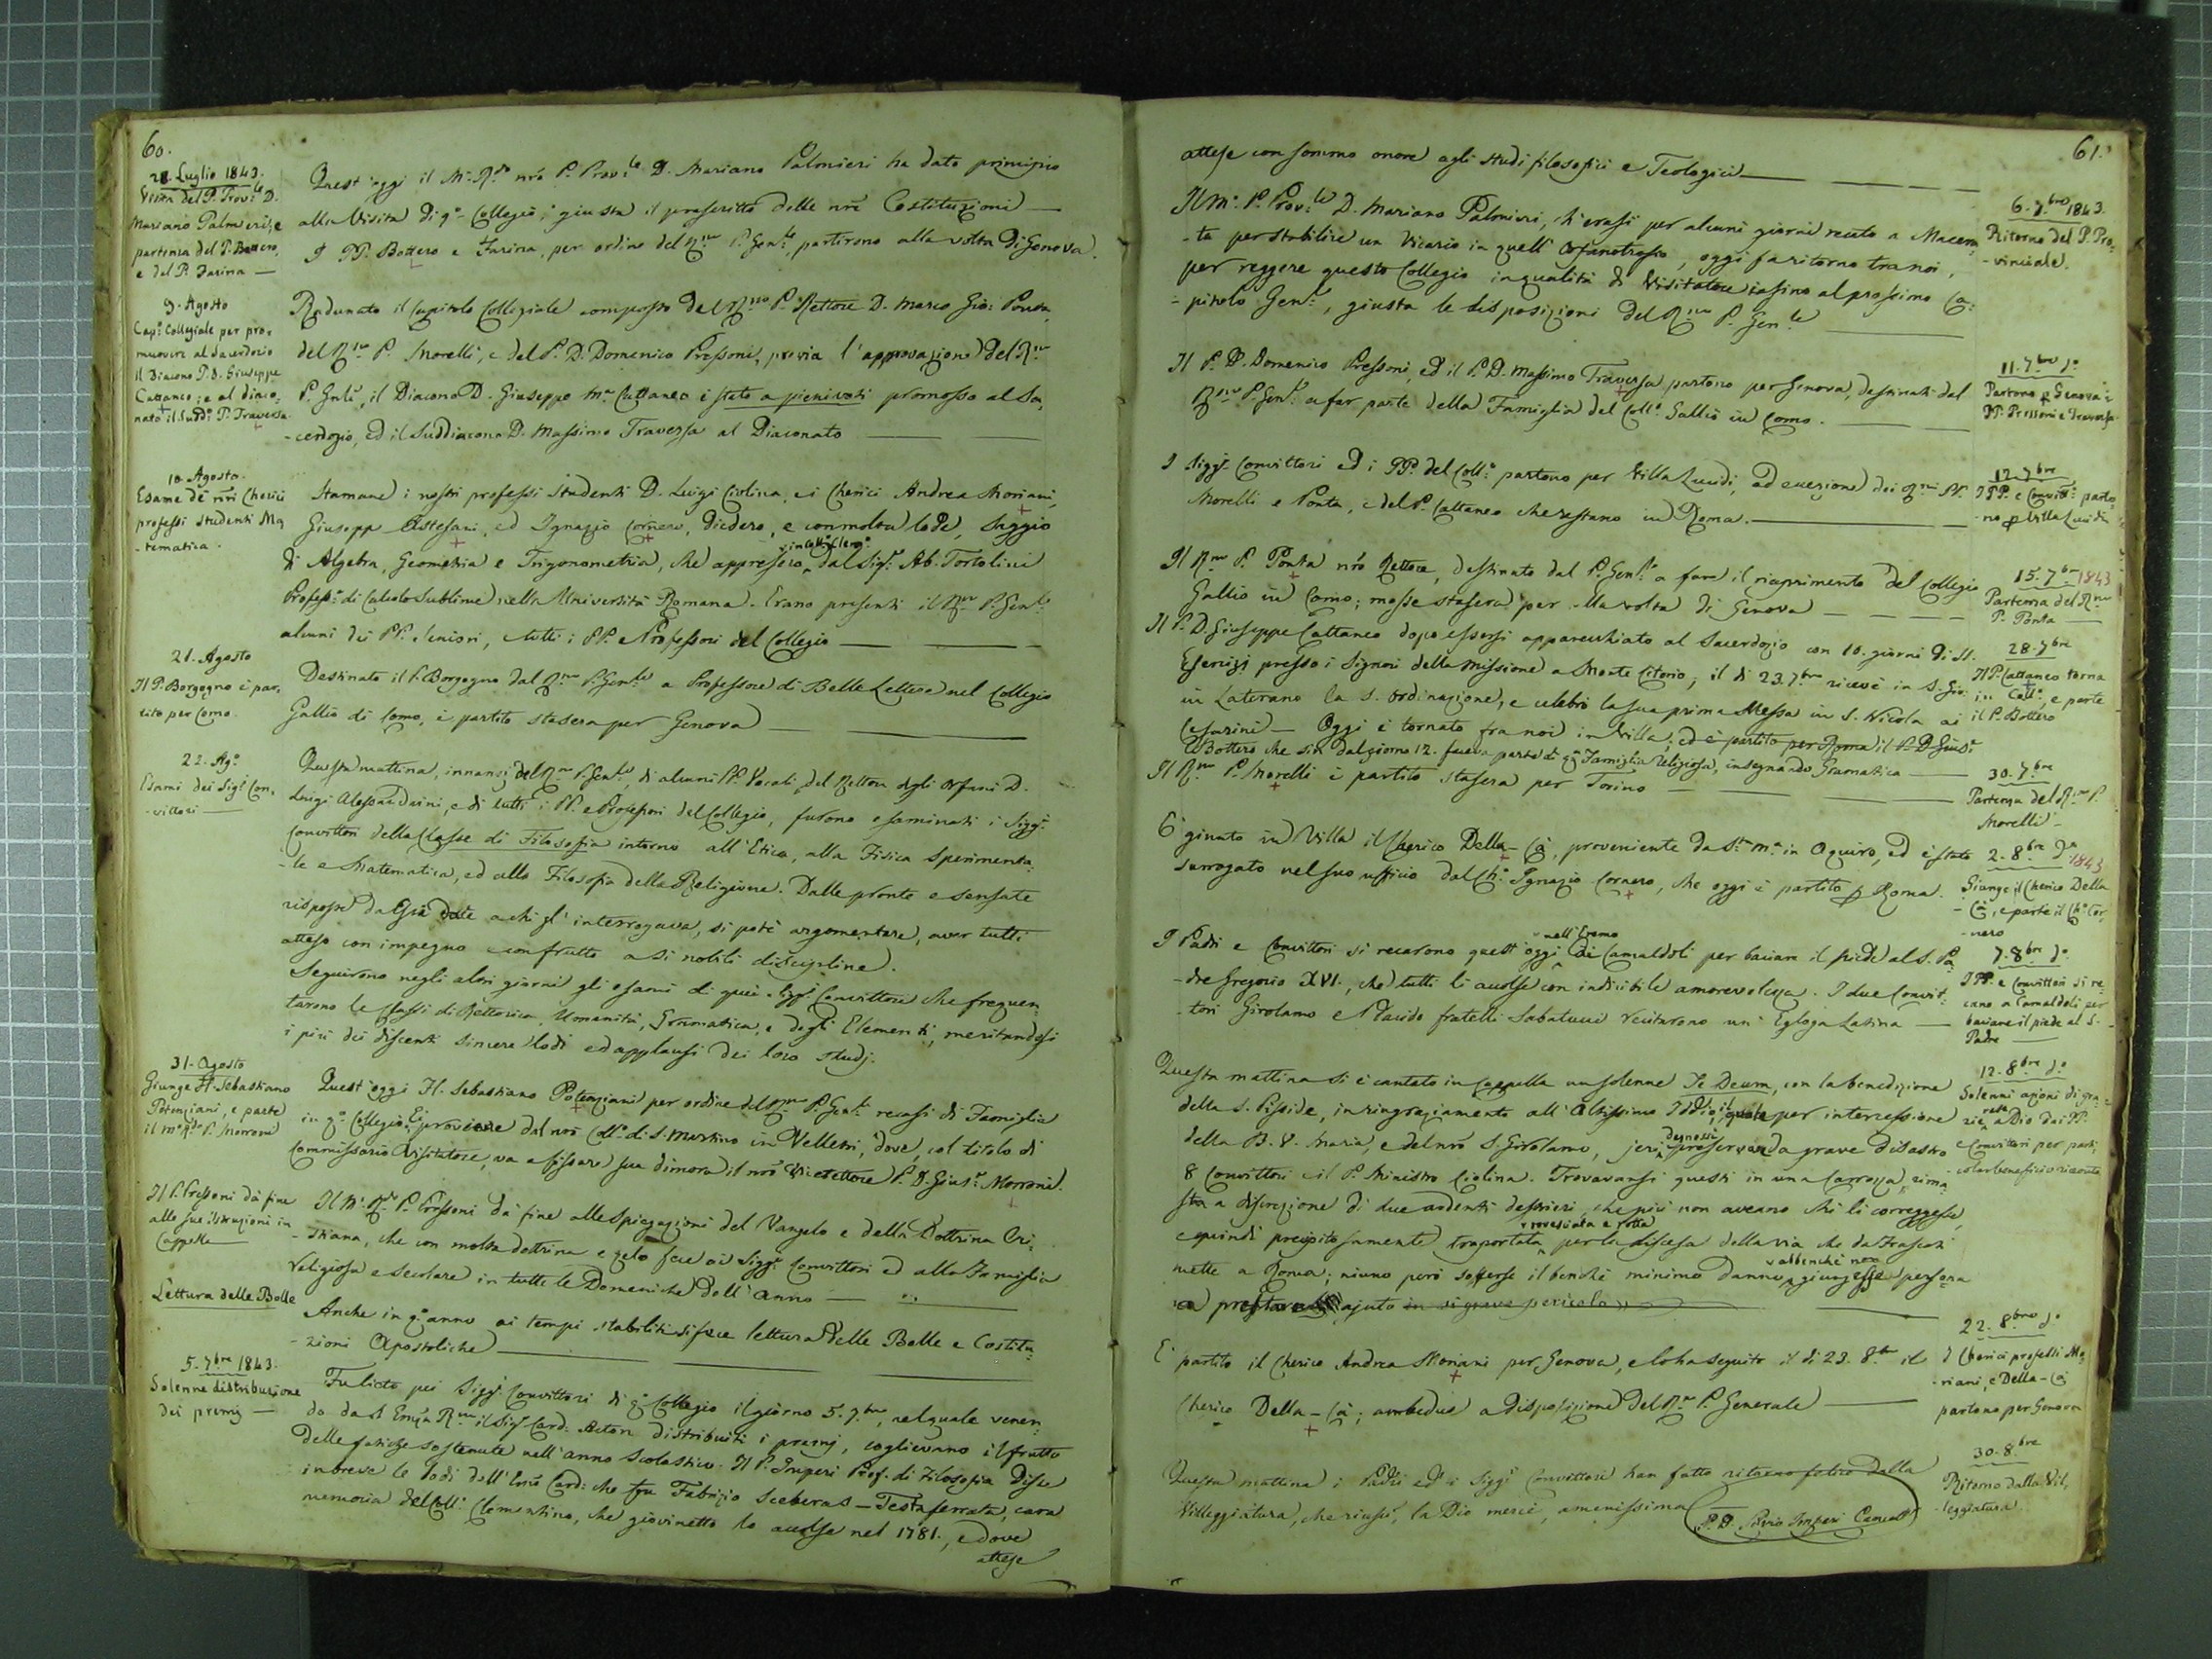 60.
28. Luglio 1843.
Visita del P. Prov.le D.
Mariano Palmieri, e
partenza del P. Bottero,
e del P. Farina —
Quest'oggi il M.o R.do nr̃o P. Prov.le D. Mariano Palmieri ha dato principio
alla Visita di q.o Collegio, giusta il prescritto delle nr̃e Costituzioni —
I PP. Bottero e Farina, per ordine del R.mo P. Gen.le, partirono alla volta di Genova.
9. Agosto
Cap.o Collegiale per pro-
muovere al Sacerdozio
il Diacono P. D. Giuseppe
Cattaneo; e al diaco-
nato il Sudd.o P. Traversa
Radunato il Capitolo Collegiale composto del R.mo P. Rettore D. Marco Gio: Ponta,
del R.mo P. Morelli, e del P. D. Domenico Pressoni, previa l'approvazione del R.mo
P. Gnl̃e, il Diacono D. Giuseppe M.a Cattaneo è stato a pieni voti promosso al Sa-
-cerdozio, ed il Suddiacono D. Massimo Traversa al Diaconato —
10. Agosto.
Esame de' nr̃i Cherici
professi studenti Ma
-tematica.
Stamane i nostri professi studenti D. Luigi Ciolina, e i Cherici Andrea Moriani,
Giuseppe Astesani, ed Ignazio Cornero, diedero, e con molta lode, saggio
di Algebra, Geometria e Trigonometria, che appresero in Coll.o Clem.o dal Sig.r Ab. Tortolini
Profess.e di Calcolo Sublime nella Università Romana. Erano presenti il R.mo P. Gen.le
alcuni dei PP. Seniori, e tutti i PP. e Professori del Collegio —
21. Agosto
Il P. Borgogno è par-
tito per Como.
Destinato il P. Borgogno dal R.mo P. Gen.le a Professore di Belle Lettere nel Collegio
Gallio di Como, è partito stasera per Genova —
22. Ag.o
Esami dei Sig.i Con-
-vittori —
Questa mattina, innanzi del R.mo P. Gen.le, di alcuni PP. Vocali, del Rettore degli Orfani D.
Luigi Alessandrini, e di tutti i PP. e Professori del Collegio, furono esaminati i Sigg.i
Convittori della Classe di Filosofia intorno all'Etica, alla Fisica Sperimenta-
-le e Matematica, ed alla Filosofia della Religione. Dalle pronte e sensate
risposte da Essi date a chi gl'interrogava, si potè argomentare, aver tutti
atteso con impegno e con frutto a sì nobili discipline.
Seguirono negli altri giorni gli esami di quei Sigg.i Convittori che frequen-
tarono le classi di Rettorica, Umanità, Grammatica, e degli Elementi, meritandosi
i più dei discenti sincere lodi ed applausi dei loro studj.
31. Agosto
Giunge Fl. Sebastiano
Potenziani, e parte
il M.o R.do P. Morroni
Quest'oggi Fl. Sebastiano Potenziani per ordine del R.mo P. Gen.le recasi di Famiglia
in q.o Collegio. Ei proviene dal nr̃o Coll.o di S. Martino in Velletri, dove, col titolo di
Commissario Visitatore, va a fissare sua dimora il nr̃o Vicerettore P. D. Gius.e Morroni.
Il P. Pressoni dà fine
alle sue istruzioni in
Cappella —
Il M.o R.do P. Pressoni dà fine alle spiegazioni del Vangelo e della Dottrina Cri-
-stiana, che con molta dottrina e zelo fece ai Sigg.i Convittori ed alla Famiglia
religiosa e secolare in tutte le Domeniche dell'anno —
Lettura delle Bolle
Anche in q.o anno ai tempi stabiliti si fece lettura delle Bolle e Costitu-
-zioni Apostoliche —
5. 7bre 1843.
Solenne distribuzione
dei premj —
Fu lieto pei Sigg.i Convittori di q.o Collegio il giorno 5. 7bre, nel quale venen-
do da S. Em̃za R.ma il Sig.r Card. Acton distribuiti i premj, coglievano il frutto
delle fatiche sostenute nell'anno scolastico. Il P. Imperi Prof. di Filosofia disse
in breve le lodi dell'Em̃o Card: che fu Fabrizio Sceberas-Testaferrata, cara
memoria del Coll.o Clementino, che giovinetto lo accolse nel 1781., e dove
attese
61.
attese con sommo onore agli studi filosofici e Teologici —
Il M.o P. Prov.le D. Mariano Palmieri, ch'erasi per alcuni giorni recato a Macera-
-ta per stabilire un Vicario in quell'Orfanotrofio, oggi fa ritorno tra noi,
per reggere questo Collegio in qualità di Visitatore insino al prossimo Ca-
-pitolo Gen.le, giusta le disposizioni del R.mo P. Gen.le —
6. 7bre 1843.
Ritorno del P. Pro-
-vinciale.
Il P. D. Domenico Pressoni, ed il P. D. Massimo Traversa, partono per Genova, destinati dal
R.mo P. Gen.le a far parte della Famiglia del Coll.o Gallio in Como. —
11. 7bre d.o
Partono p Genova i
PP. Pressoni e Traversa
I Sigg.i Convittori ed i PP. del Coll.o partono per Villa Lucidi, ad eccezione dei R.mi PP.
Morelli e Ponta, e del P. Cattaneo che restano in Roma. —
12. 7bre
I PP. e Convitt.i parto-
-no p Villa Lucidi
Il R.mo P. Ponta nr̃o Rettore, destinato dal P. Gen.le a fare il riaprimento del Collegio
Gallio in Como; mosse stasera per alla volta di Genova —
15. 7bre 1843
Partenza del R.mo
P. Ponta —
Il P. D. Giuseppe Cattaneo dopo essersi apparecchiato al Sacerdozio con 10. giorni di SS.
Esercizj presso i Signori della Missione a Monte Citorio, il dì 23. 7bre ricevè in S. Gio:
in Laterano la S. Ordinazione, e celebrò la sua prima Messa in S. Nicola ai
Cesarini — Oggi è tornato fra noi in Villa; ed è partito per Roma il P. D. Gius.e
Bottero che sin dal giorno 12. faceva parte di q.a Famiglia religiosa, insegnando Gramatica —
28. 7bre
Il P. Cattaneo torna
in Coll.o, e parte
il P. Bottero
Il R.mo P. Morelli è partito stasera per Torino —
30. 7bre
Partenza del R.mo P.
Morelli —
È giunto in Villa il Cherico Della-Cà, proveniente da S.ta M.a in Aquiro, ed è stato
surrogato nel suo ufficio dal Ch.o Ignazio Cornero, che oggi è partito p Roma.
2. 8bre d.o 1843
Giunge il Cherico Della
-Cà, e parte il Ch.o Cor-
-nero
I Padri e Convittori si recarono quest'oggi nell'Eremo di Camaldoli per baciare il piede al S. Pa-
-dre Gregorio XVI., che tutti li accolse con indicibile amorevolezza. I due Convit-
-tori Girolamo e Placido fratelli Sabatucci recitarono un'Egloga Latina —
7. 8bre d.o
I PP. e Convittori si re-
cano a Camaldoli per
baciare il piede al S.
Padre —
Questa mattina si è cantato in Cappella un solenne Te Deum, con la benedizione
della S. Pisside, in ringraziamento all'Altissimo Iddio, il quale per intercessione
della B. V. Maria, e del nr̃o S. Girolamo, jeri degnossi preservare da grave disastro
8 Convittori e il P. Ministro Ciolina. Trovavansi questi in una Carrozza, rima-
sta a discrezione di due ardenti destrieri, che più non aveano chi li correggesse,
e quindi precipitosamente trasportata, rovesciata e rotta per la discesa della via che da Frascati
mette a Roma; niuno però sofferse il benchè minimo danno, abbenchè non giungesse persona
a prestare ajuto in sì grave pericolo —
12. 8bre d.o
Solenni azioni di gra-
zie rese a Dio dai PP.
e Convittori per parti-
-colar beneficio ricevuto
È partito il Cherico Andrea Moriani per Genova, e lo ha seguito il dì 23. 8bre il
Cherico Della-Cà; ambedue a disposizione del R.mo P. Generale —
22. 8bre d.o
I Cherici professi Mo-
-riani, e Della-Cà
partono per Genova
Questa mattina i Padri ed i Sigg.i Convittori han fatto ritorno felice dalla
Villeggiatura, che riuscì, la Dio mercè, amenissima (P. D. Silvio Imperi Cancell.e)
30. 8bre
Ritorno dalla Vil-
-leggiatura.